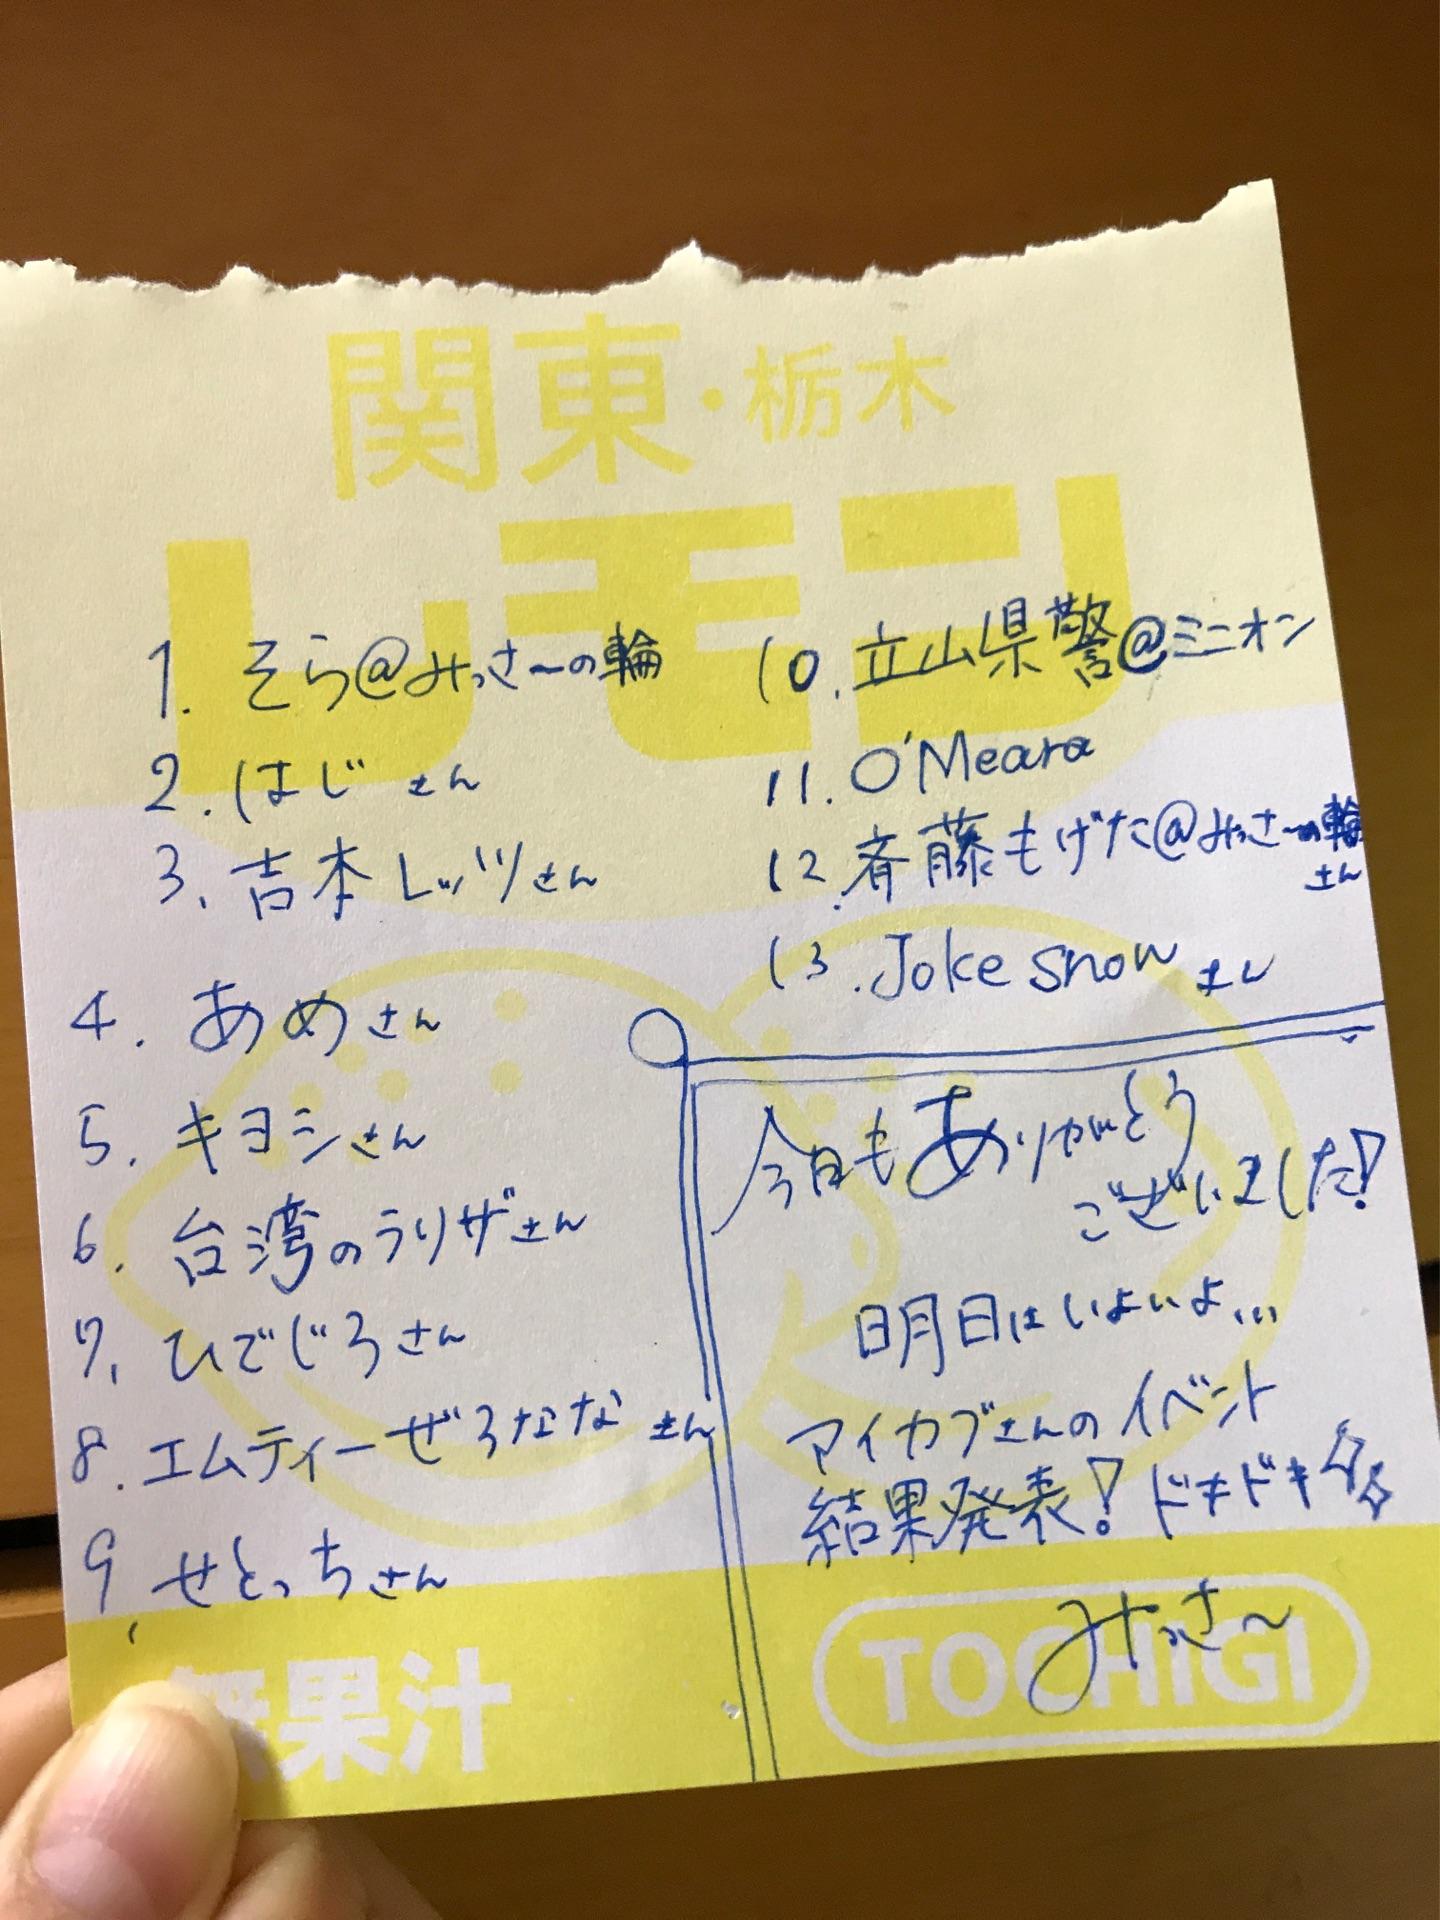 関東・栃木
レモン
1. そら@みっさーの輪
2. はじ さん
3. 吉本レッツさん
4. あめさん
5. キヨシさん
6. 台湾のラリザさん
7. ひでじろさん
8. エムティーぜろなな さん
9. せとっちさん
10. 立山県警@ミニオン
11. O'Meara
12. 斉藤もげた@みっさーの輪
さん
13. Joke snow さん
今日もありがとう
ございました!
明日はいよいよ...
マイカブさんのイベント
結果発表! ドキドキ
みっさ〜
無果汁
TOCHIGI